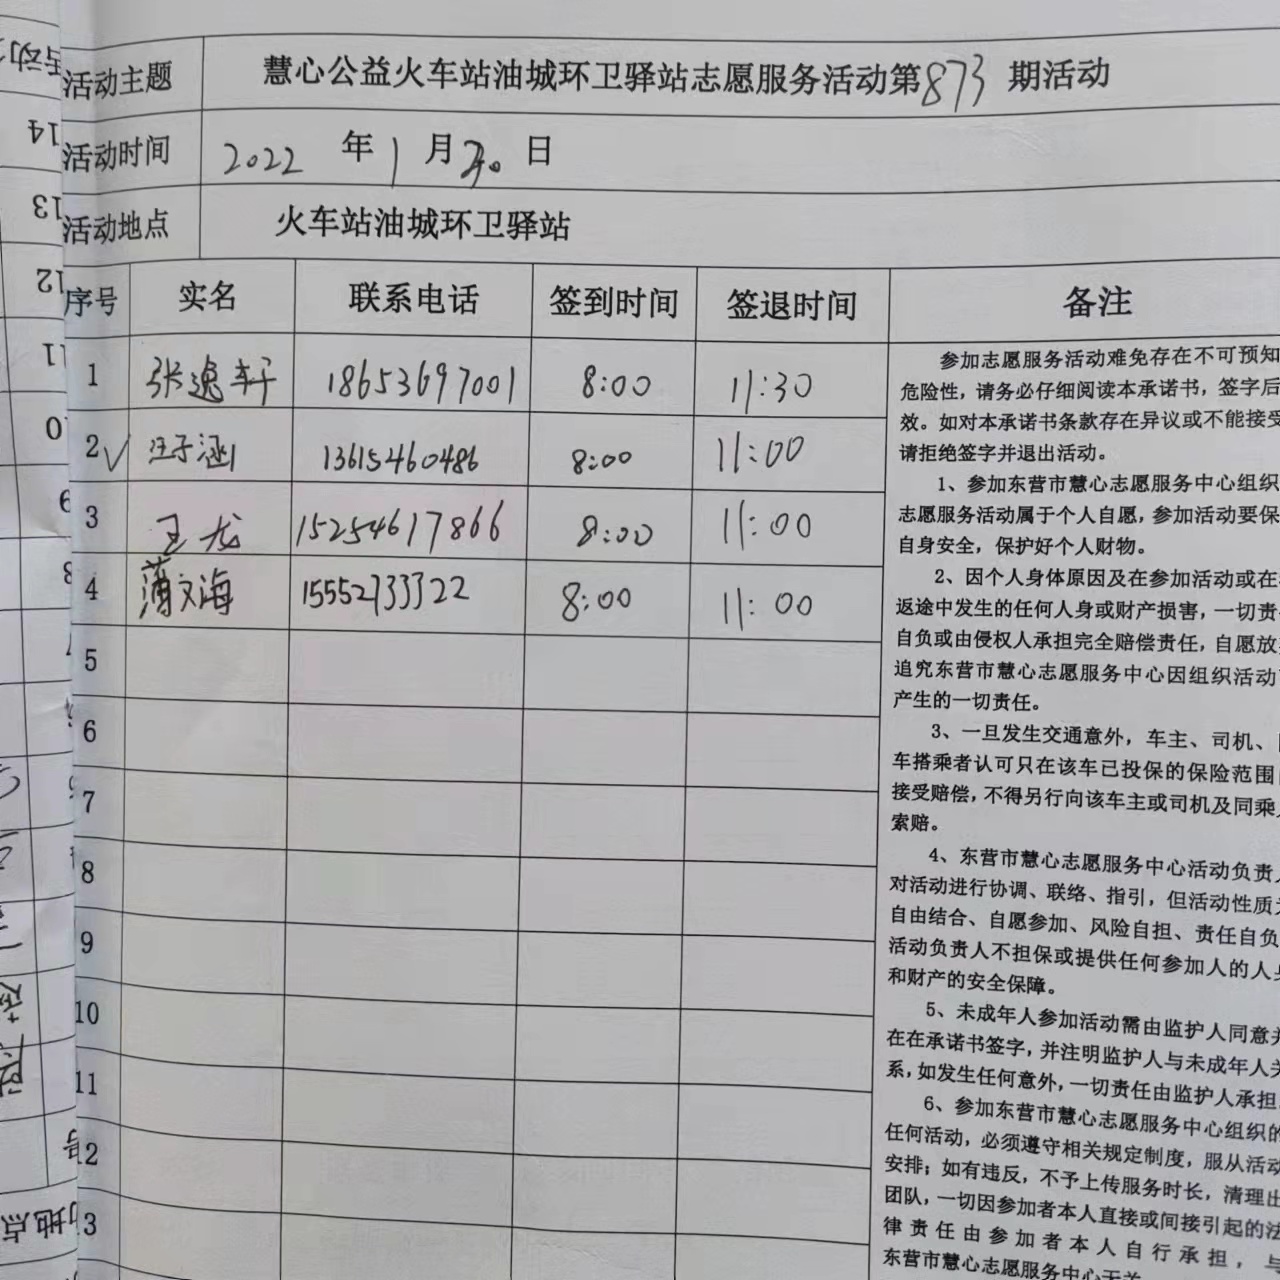 活动主题 慧心公益火车站油城环卫驿站志愿服务活动第873期活动
活动时间 2022 年 1 月 30 日
活动地点 火车站油城环卫驿站
序号 实名 联系电话 签到时间 签退时间 备注
1 张逸轩 18653697001 8:00 11:30
2 汪子涵 13615460486 8:00 11:00
3 王龙 15254617866 8:00 11:00
4 薄文海 15552733322 8:00 11:00
5
6
7
8
9
10
11
12
13
参加志愿服务活动难免存在不可预知
危险性，请务必仔细阅读本承诺书，签字后
效。如对本承诺书条款存在异议或不能接受
请拒绝签字并退出活动。
1、参加东营市慧心志愿服务中心组织
志愿服务活动属于个人自愿，参加活动要保
自身安全，保护好个人财物。
2、因个人身体原因及在参加活动或在
返途中发生的任何人身或财产损害，一切责
自负或由侵权人承担完全赔偿责任，自愿放
追究东营市慧心志愿服务中心因组织活动
产生的一切责任。
3、一旦发生交通意外，车主、司机、
车搭乘者认可只在该车已投保的保险范围
接受赔偿，不得另行向该车主或司机及同乘
索赔。
4、东营市慧心志愿服务中心活动负责
对活动进行协调、联络、指引，但活动性质
自由结合、自愿参加、风险自担、责任自负
活动负责人不担保或提供任何参加人的人身
和财产的安全保障。
5、未成年人参加活动需由监护人同意并
在在承诺书签字，并注明监护人与未成年人关
系，如发生任何意外，一切责任由监护人承担
6、参加东营市慧心志愿服务中心组织的
任何活动，必须遵守相关规定制度，服从活动
安排；如有违反，不予上传服务时长，清理出
团队，一切因参加者本人直接或间接引起的法
律责任由参加者本人自行承担，与
东营市慧心志愿服务中心无关